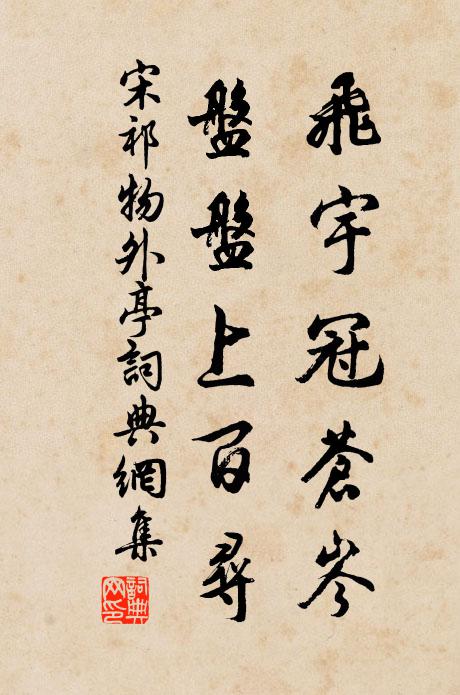 飛宇冠蒼岑
盤盤上百尋
宋祁物外亭詞典網集
詞典網印